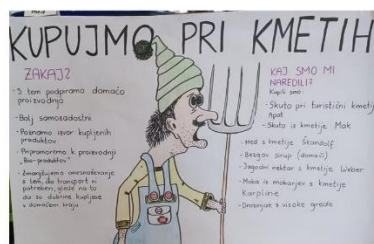 KUPUJMO PRI KMETIH
ZAKAJ?
- S tem podpiramo domačo
proizvodnjo
- Bolj samozadostni
- Poznamo izvor kupljenih
produktov
- Pripomoremo k proizvodnji
"Bio-produktov"
- Zmanjšujemo onesnaževanje
s tem, da transport ni
potreben, glede na to
da so dobrine kupljene
v domačem kraju
KAJ SMO MI
NAREDILI?
Kupili smo
- Skuto pri turistični kmetiji
Apat
- Skuto iz kmetije Mak
- Med s kmetije Škandolf
- Bezgov sirup (domači)
- Jagodni nektar s kmetije
- Moko iz mokarjev s kmetije
Karpline
- Drobnjak z visoke grede